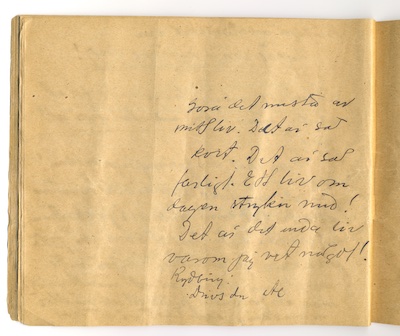 det mesta av
mitt liv. Det är så
kort. Det är så
farligt. Ett liv om
dagen stryker med!
Det är det enda liv
varom jag vet något!